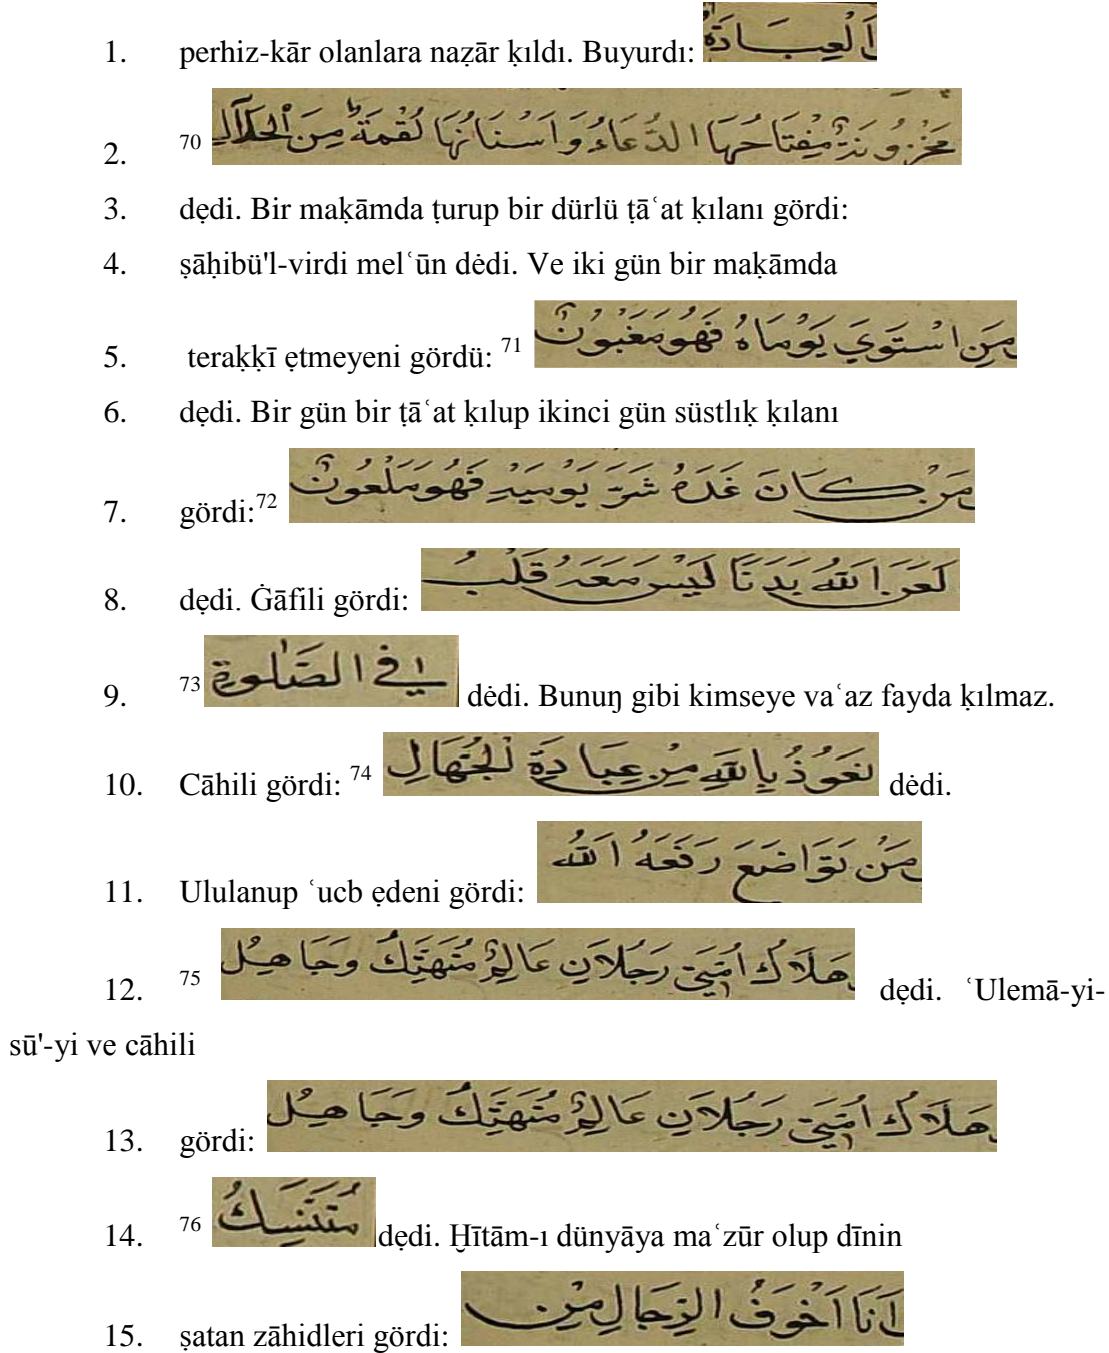 1. perhiz-kār olanlara naẓār ḳıldı. Buyurdı: اَلْعِبَادَةُ
2. 70 مَخْزُونَةٌ مِفْتَاحُهَا الدُّعَاءُ وَاَسْنَانُهَا لُقْمَةٌ مِنَ الْحَلَالِ
3. dędi. Bir maḳāmda ṭurup bir dürlü ṭāʿat ḳılanı gördi:
4. ṣāḥibü'l-virdi melʿūn dėdi. Ve iki gün bir maḳāmda
5. teraḳḳī ętmeyeni gördü: 71 مَنِ اسْتَوَيَ يَوْمَاهُ فَهُوَ مَغْبُونٌ
6. dędi. Bir gün bir ṭāʿat ḳılup ikinci gün süstlıḳ ḳılanı
7. gördi:72 مَنْ كَانَ غَدَهُ شَرَّ يَوْمَيْهِ فَهُوَ مَلْعُونٌ
8. dędi. Ġāfili gördi: لَعَنَ اللهُ بَدَنًا لَيْسَ مَعَهُ قَلْبُ
9. 73 فِي الصَّلٰوةِ dėdi. Bunuŋ gibi kimseye vaʿaz fayda ḳılmaz.
10. Cāhili gördi: 74 نَعُوذُ بِاللهِ مِنْ عِبَادَةِ الْجُهَّالِ dėdi.
11. Ululanup ʿucb ędeni gördi: مَنْ تَوَاضَعَ رَفَعَهُ اللهُ
12. 75 هَلَاكُ اُمَّتِي رَجُلَانِ عَالِمٌ مُتَهَتِّكٌ وَجَاهِلٌ dędi. ʿUlemā-yi-
sū'-yi ve cāhili
13. gördi: هَلَاكُ اُمَّتِي رَجُلَانِ عَالِمٌ مُتَهَتِّكٌ وَجَاهِلٌ
14. 76 مُتَنَسِّكُ dędi. Ḫītām-ı dünyāya maʿzūr olup dīnin
15. ṣatan zāhidleri gördi: اَنَا اَخْوَفُ الرِّجَالِ مِنْ